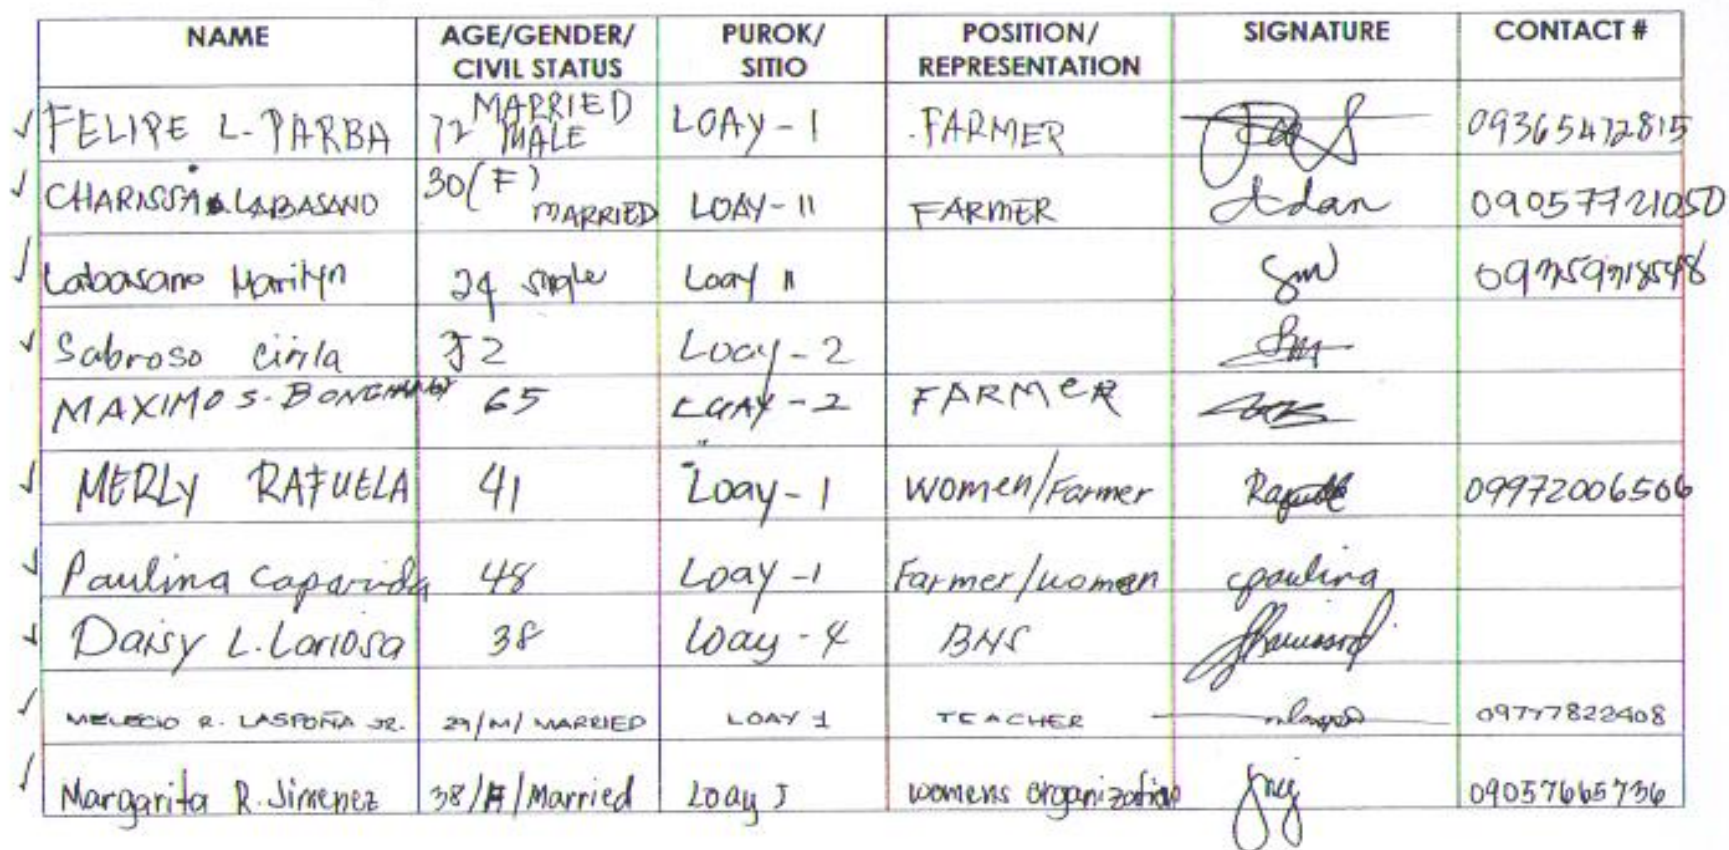 NAME AGE/GENDER/ CIVIL STATUS PUROK/ SITIO POSITION/ REPRESENTATION SIGNATURE CONTACT #
FELIPE L. PARBA 72 MARRIED MALE LOAY - 1 FARMER 09365472815
CHARISSA LABASANO 30 (F) MARRIED LOAY - II FARMER Adan 09057721050
Labasano Marilyn 24 single Loay II
Sabroso Cirila 52 Loay - 2
MAXIMO S. 65 LOAY - 2 FARMER
MERLY RAFUELA 41 Loay - 1 women/Farmer 09972006506
Paulina Caparida 48 Loay - 1 Farmer/women cpaulina
Daisy L. Lariosa 38 Loay - 4 BHS
MELECIO R. LASPOÑA JR. 29/M/MARRIED LOAY 1 TEACHER 09777822408
Margarita R. Jimenez 38/F/Married Loay I womens organization 09057665736